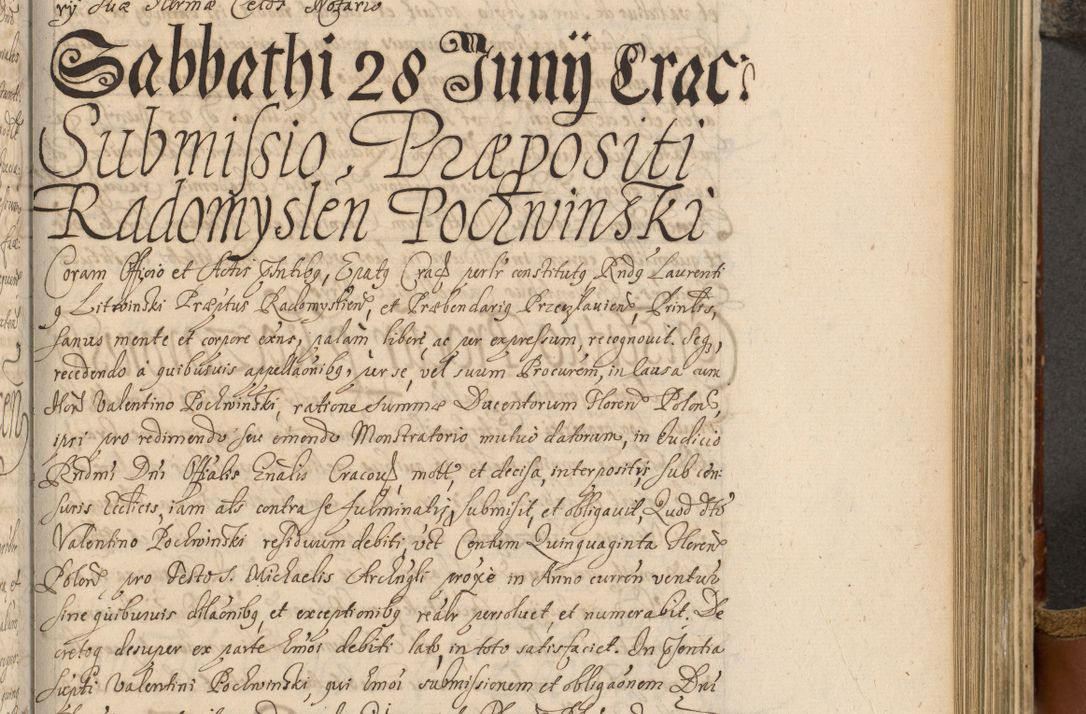 ry suæ firmæ Notario
Sabbathi 28 Junij Crac:
Submissio Præpositi
Radomyslen Pochwinski
Coram Officio et Actis pñtibq, Epatq Crac perlr constitutq Rndq Laurenti
q Litwinski Præptus Radomyslien, et Præbendariq Przecslavien, Printis,
sanus mente et corpore exñs, palam libere ac per expressum, recognouit. Seq,
recedendo à quibusuis appellaõnibq, per se, vel suum Procurem, in causa cum
Hon Valentino Pochwinski, ratione summæ Ducentorum Floren Polon,
ipsi pro redimendo seu emendo Monstratorio mutuò datorum, in Judicio
Rndmi Dni Offalis Gnalis Cracou, mott, et decisa, interpositis, sub cen-
suris Eccticis, iam als contra se fulminatis, submisit, et obligauit, Quod dto
Valentino Pochwinski residuum debiti, vct Centum Quinquaginta Floren
Polon pro Festo S. Michaelis Archngli proxè in Anno curren ventur
sine quibusuis dilaõnibq et exceptionibq realr persoluet, et numerabit. De
cretoq desuper ex parte hmõi debiti lato, in toto satisfaciet. In pñtia
Valentini Pochwinski, qui hmõi submissionem et obligaõnem Dni